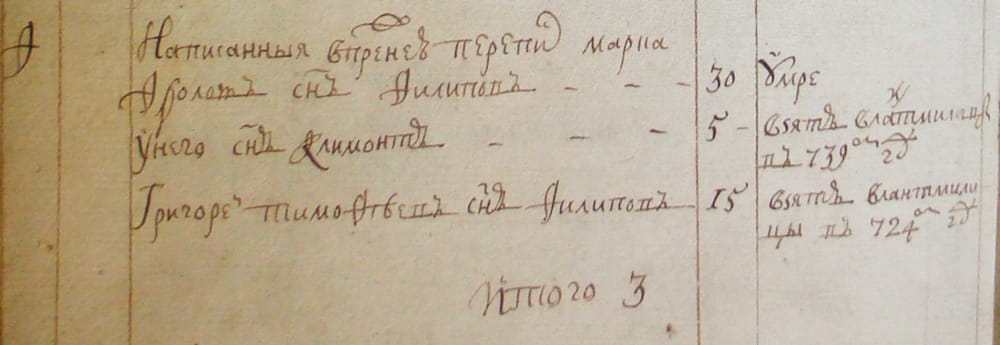 Написанныя впрежнеꙗ перепиⷭ марка
Ѳролотъ снъ Ѳилиповъ - - - 30 Умре
Унего снъ Климонтъ - - 5 - взятъ влатмилицы
въ 739ᵒᵐ гд
Григореⷡ Тимоѳѣевъ снъ Ѳилиповъ 15 взятъ влантмили
цы въ 724ᵒᵐ гд
Итого 3